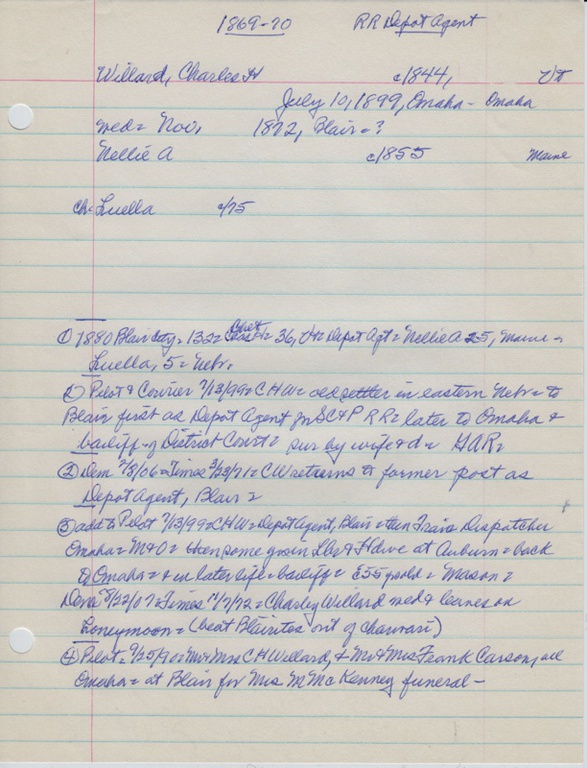 1869-70 RR Depot Agent
Willard, Charles H c1844, VT
July 10, 1899, Omaha - Omaha
med= Nov, 1872, Blair = ?
Nellie A c1855 Maine
Ch= Luella c/75
① 1880 Blair City = 132 = Chas H = 36, Vt = Depot Agt = Nellie A 25, Maine =
Luella, 5 = Nebr.
② Pilot & Courier 7/13/99 = CHW = old settler in eastern Nebr = to
Blair first as Depot Agent for SC&P RR = later to Omaha &
bailiff of District Court = sur by wife & d = GAR =
② Dem 2/8/06 = Times 3/23/71 = CW returns to former post as
Depot Agent, Blair =
③ add to Pilot 7/13/99 = CHW = Depot Agent, Blair = then Train Dispatcher
Omaha = M&O = then some grain & Hdwe at Auburn = back
to Omaha = & in later life = bailiff = 55 yrs old = Mason =
Dem 8/22/07 = Times 11/7/72 = Charley Willard med & leaves on
honeymoon = (beat Blairites out of charivari)
④ Pilot = 9/25/90 = Mr & Mrs CH Willard, & Mr & Mrs Frank Carson, all
Omaha = at Blair for Mrs M McKenney funeral -